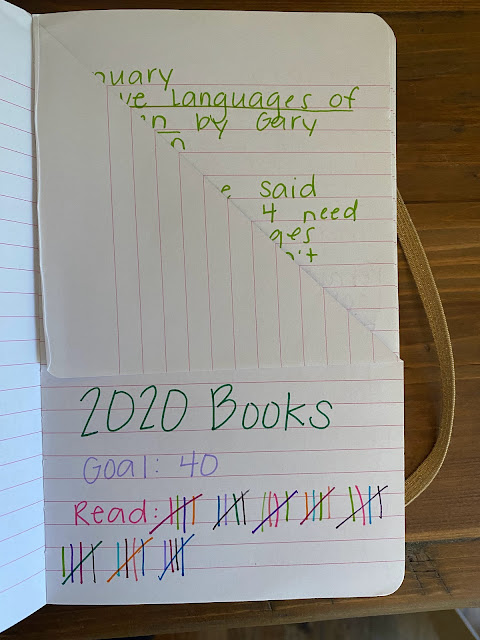 nuary
ve Languages of
n by Gary
n
e said
4 need
ges
n't
2020 Books
Goal: 40
Read: